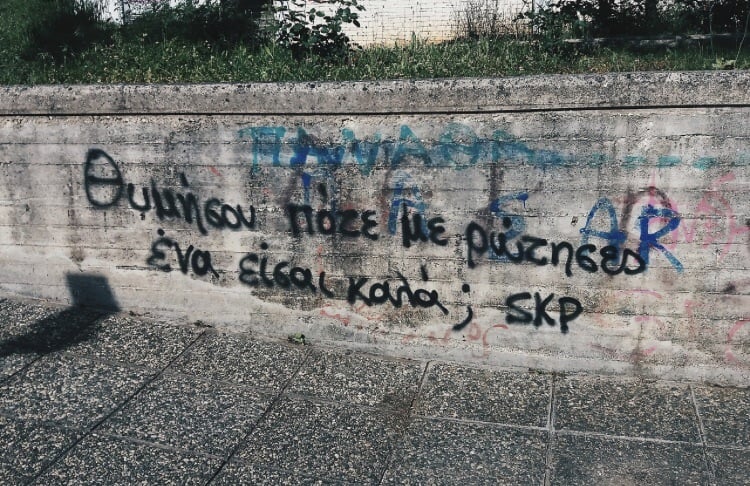 ΠΑΝΑΘΑ
Θυμήσου πότε με ρώτησες
ένα είσαι καλά; SKP